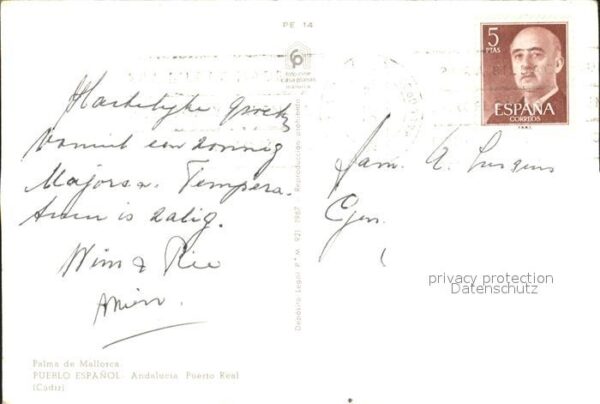 PE 14
5
PTAS
ESPAÑA
CORREOS
Hartelijke groeten
vanuit een zonnig
Majorca. Tempera
tuur is zalig.
Wim & Rie
Fam. A.
Depósito Legal P*M 921 1967 Reproducción prohibida
privacy protection
Datenschutz
Palma de Mallorca.
PUEBLO ESPAÑOL. Andalucia Puerto Real
(Cadiz)